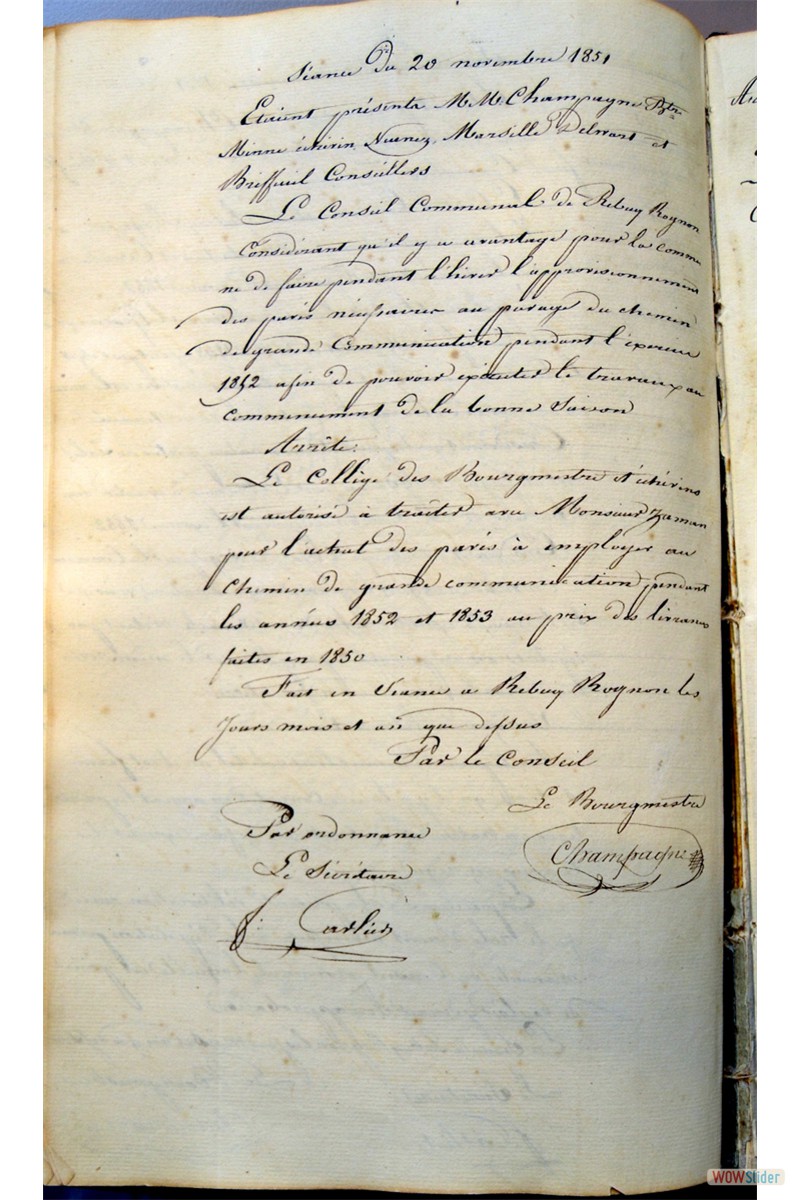 Séance du 20 novembre 1851
Etaient présents M.M. Champagne Bgtre
Minne échévin, Nuenez, Marseille, Delwart et
Briffeuil Conseillers
Le Conseil Communal de Rebecq Rognon
Considérant qu'il y a avantage pour la commu
ne de faire pendant l'hiver l'approvisionnement
des pavés nécessaires au pavage du chemin
de grande Communication pendant l'exercice
1852 afin de pouvoir exécuter le travaux au
commencement de la bonne Saison
Arrête:
Le Collége des Bourgmestre et échévins
est autorisé à traiter avec Monsieur Zaman
pour l'achat des pavés à employer au
chemin de grande communication pendant
les années 1852 et 1853 au prix des livrances
faites en 1850
Fait en Séance a Rebecq Rognon les
Jours mois et an que dessus
Par le Conseil
Le Bourgmestre
Champagne
Par ordonnance
Le Sécrétaire
Carlier
WOWSlider